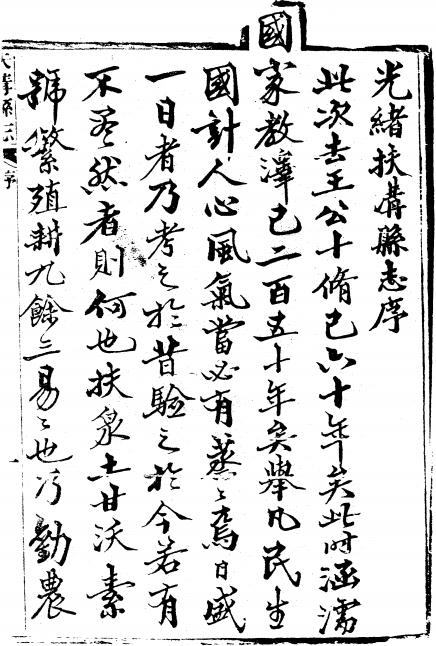 光緒扶溝縣志序
此次去王公十脩已六十年矣此時涵濡
國家教澤已二百五十年矣舉凡民生
國計人心風氣當必有蒸〻焉日盛
一日者乃考之於昔驗之於今若有
不盡然者則何也扶泉土甘沃素
號繁殖耕九餘三易〻也乃勸農
溝縣志 序 一